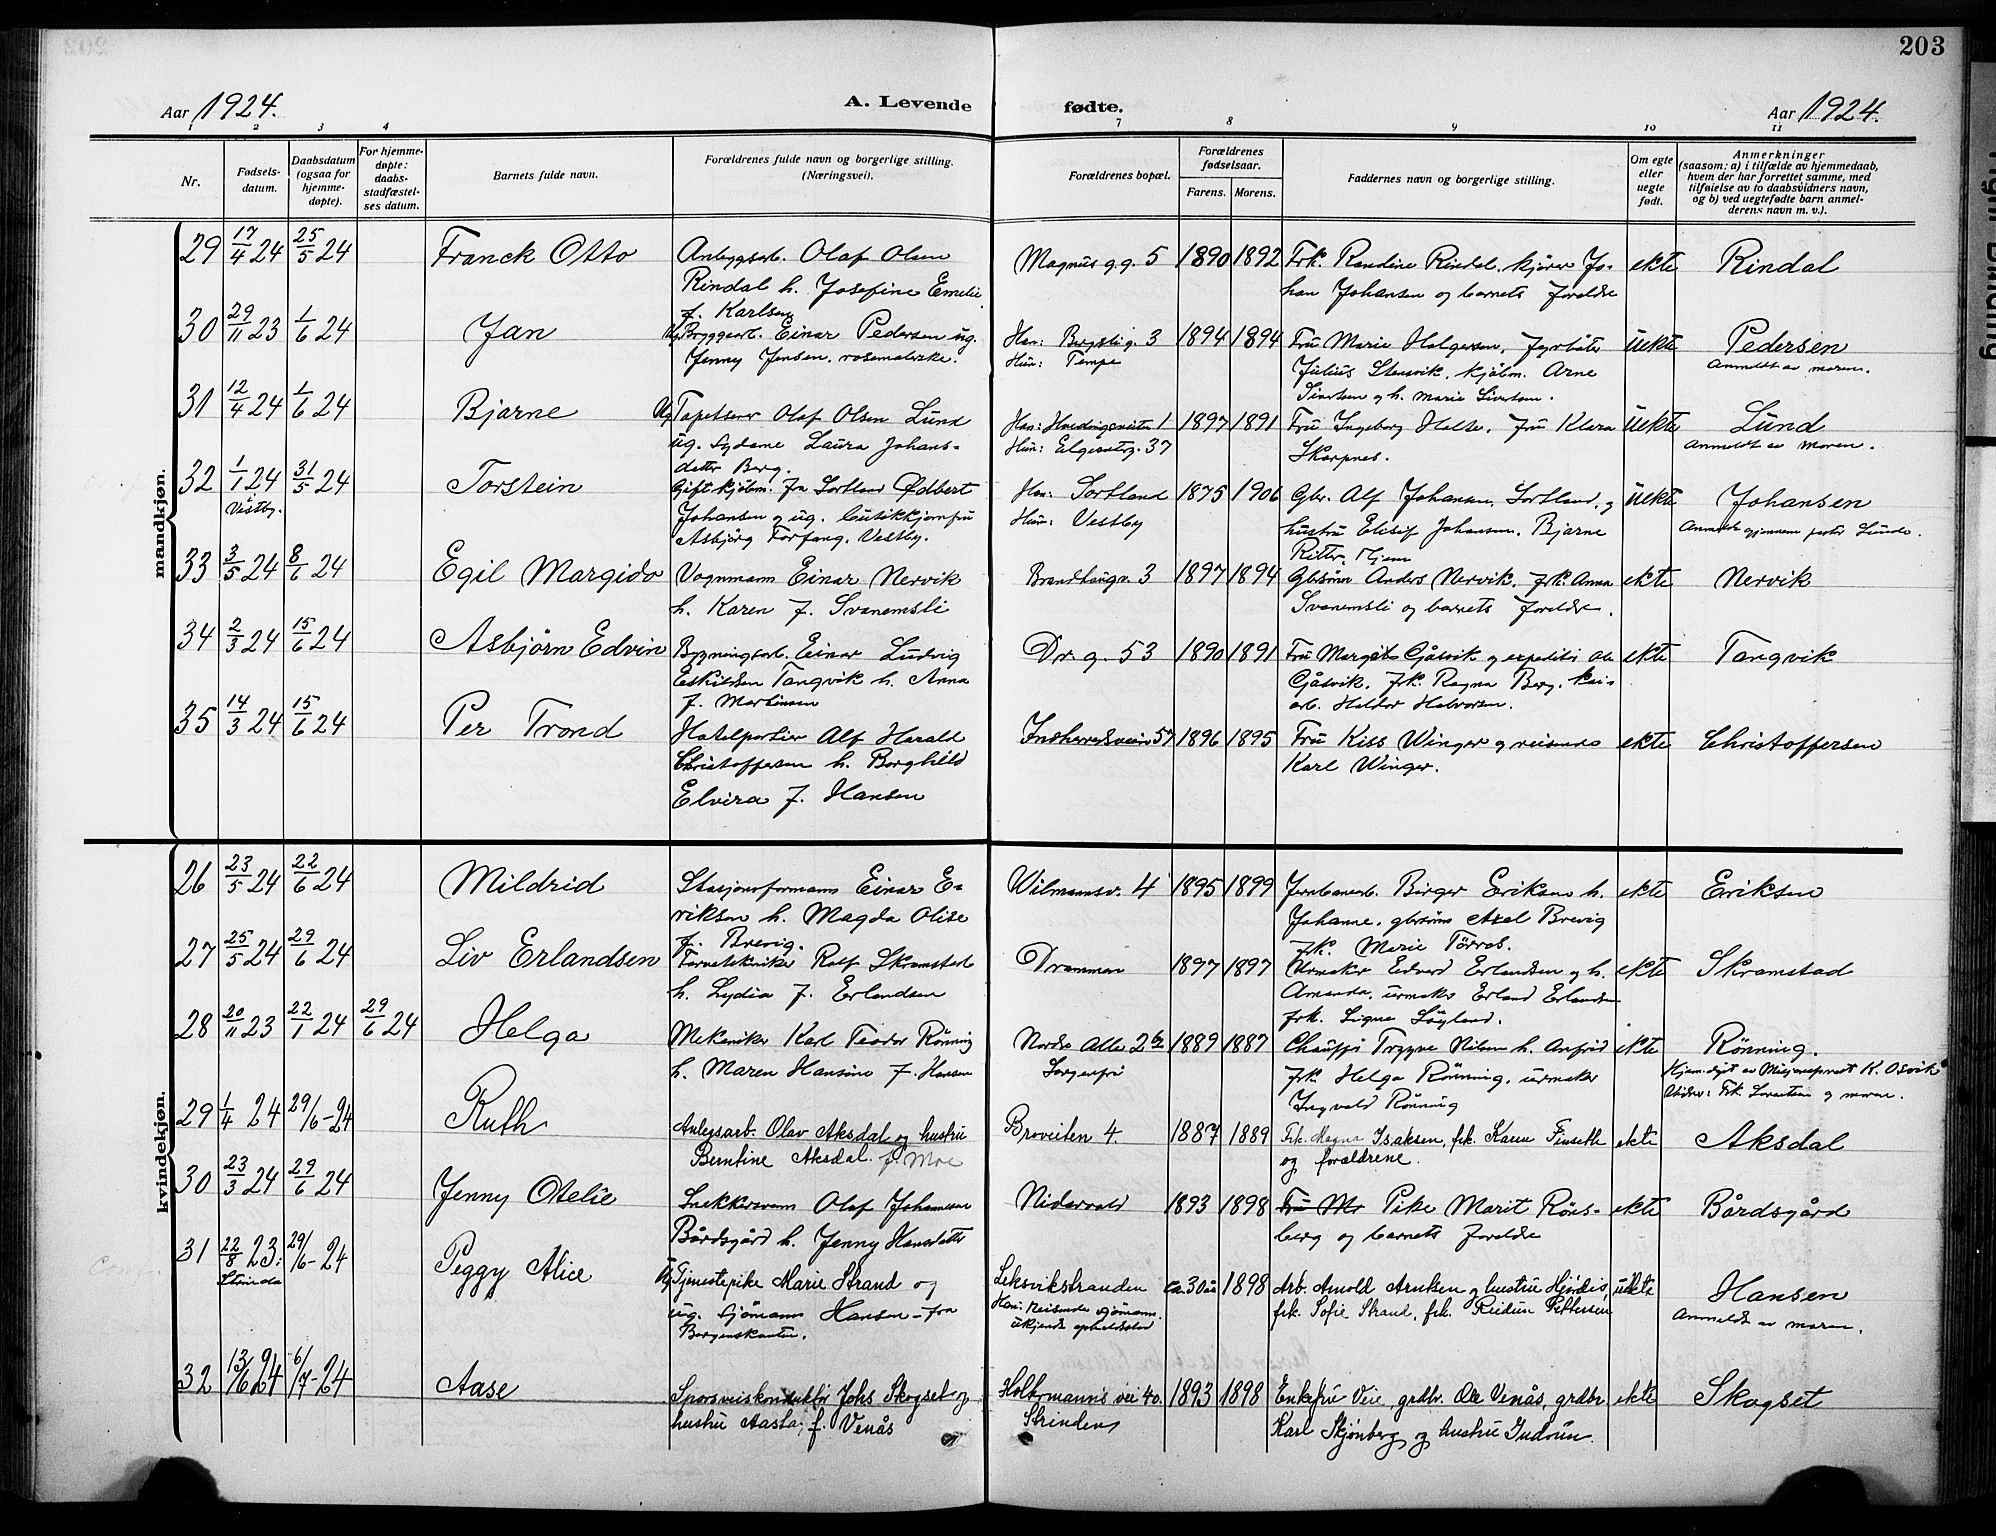 203
Aar 1924. A. Levende fødte. Aar 1924.
1 2 3 4 7 8 9 10 11
Nr.
Fødsels-
datum.
Daabsdatum
(ogsaa for
hjemme-
døpte).
For hjemme-
døpte:
daabs-
stadfæstel-
ses datum.
Barnets fulde navn.
Forældrenes fulde navn og borgerlige stilling.
(Næringsvei).
Forældrenes bopæl.
Forældrenes
fødselsaar.
Farens. Morens.
Faddernes navn og borgerlige stilling.
Om egte
eller
uegte
født.
Anmerkninger
(saasom: a) i tilfælde av hjemmedaab,
hvem der har forrettet samme, med
tilføielse av to daabsvidners navn,
og b) ved uegtefødte barn anmel-
derens navn m. v.).
mandkjøn.
29 17/4 24 25/5 24 Franck Otto Anleggsarb. Olaf Olsen
Rindal h. Josefine Emelie
f. Karlsen
Magnus g.g. 5 1890 1892 Frk. Randine Rindal, kjører Jo-
han Johansen og barnets foreldre
ekte Rindal
30 29/11 23 1/6 24 Jan Ug. Bryggearb. Einar Pedersen ug.
Jenny Jensen,
Han: Bergslig. 3
Hun: Tempe
1894 1894 Fru Marie Holgersen, fyrbøter
Julius Stensvik, kjøbm. Arne
Sivertsen og h. Marie Sivertsen.
uekte Pedersen
Anmeldt av moren.
31 12/4 24 1/6 24 Bjarne Ug. Tapetserer Olaf Olsen Lund
ug. sydame Laura Johans-
datter Berg.
Hun: Elgeseterg. 37
1897 1891 Fru Ingeborg Halse, fru Klara
Skarpnes.
uekte Lund
Anmeldt av moren.
32 1/1 24 31/5 24 Torstein Gift kjøbm. fra Sortland Ødbert
Vestby.
Johansen og ug. butikkjomfru
Asbjørg Forfang, Vestby.
Han: Sortland
Hun: Vestby
1875 1906 Gbr. Alf Johansen, Sortland, og
hustru Elisif Johansen, Bjarne
Ritter, Hjem
uekte Johansen
Anmeldt gjennem pastor Lunde.
33 3/5 24 8/6 24 Egil Margido Vognmann Einar Nervik
h. Karen f. Svanemsli
Brandhaugv. 3 1897 1894 Gbrsønn Anders Nervik, frk. Anna
Svanemsli og barnets foreldre.
ekte Nervik
34 2/3 24 15/6 24 Asbjørn Edvin Bygningsarb. Einar Ludvig
Eskildsen Tangvik h. Anna
f. Martinsen
Dr. g. 53 1890 1891 Fru Margit Gjåsvik og expeditør Ole
Gjåsvik, frk. Ragna Berg, kai-
arb. Haldor Halvorsen.
ekte Tangvik
35 14/3 24 15/6 24 Per Trond Hotelportier Alf Harald
Christoffersen h. Borghild
Elvira f. Hansen
Innherredsveien 57 1896 1895 Fru Kiss Winger og reisende
Karl Winger.
ekte Christoffersen
kvindekjøn.
26 23/5 24 22/6 24 Mildrid Stasjonsformann Einar E-
riksen h. Magda Olise
f. Brevig.
Wilmannsv. 4 1895 1899 Jernbanearb. Birger Eriksen h.
Johanne, gbrsønn Axel Brevig
frk. Marie Tørres.
ekte Eriksen
27 25/5 24 29/6 24 Liv Erlandsen Rolf Skramstad
h. Lydia f. Erlandsen
Drammen 1897 1897 Urmaker Edvard Erlandsen og h.
Amanda, urmaker Erland Erlandsen
frk. Signe Løyland.
ekte Skramstad
28 20/11 23 22/1 24 29/6 24 Helga Mekaniker Karl Teodor Rønning
h. Maren Hansine f. Hansen
Nordre Alle 2b
Sorgenfri
1889 1887 Chauffør Trygve Nilsen h. Anfrid
frk. Helga Rønning, urmaker
Ingvald Rønning
ekte Rønning.
Hjem.døpt av Misjonsprest K. Osvik
Vidner: Frk. Lorentsen og moren.
29 1/4 24 29/6-24 Ruth Anlegsarb. Olav Aksdal og hustru
Berntine Aksdal f. Moe
Broveiten 4 1887 1889 Frk. Magna Isaksen, frk. Karen Finseth
og forældrene.
ekte Aksdal
30 23/3 24 29/6 24 Jenny Otelie Snekkersvenn Olaf Johannesen
Bårdsgård h. Jenny Hansdatter
Nidarvold 1893 1898 Fru Mr Pike Marit Røns-
berg og barnets foreldre
ekte Bårdsgård
31 22/8 23. 29/6-24 Peggy Alice Ug. Tjenestepike Marie Strand og
Strinda
ug. sjømann Hansen - fra
Bergenskanten.
Leksvikstranden
Han: Reisende sjømann.
ukjendt opholdssted
ca. 30 år 1898 Arb. Arnold Arntsen og hustru Hjørdis,
frk. Sofie Strand, frk. Reidun Pettersen
uekte Hansen
Anmeldt av moren.
32 13/6 24 6/7-24 Aase Sporveiskonduktør Johs Skogset og
hustru Aasta, f. Venås
Holtermanns vei 40.
Strinden
1893 1898 Enkefru Veie, grdbr. Ole Venås, grdbr.
Karl Skjønberg og hustru Gudrun.
ekte Skogset